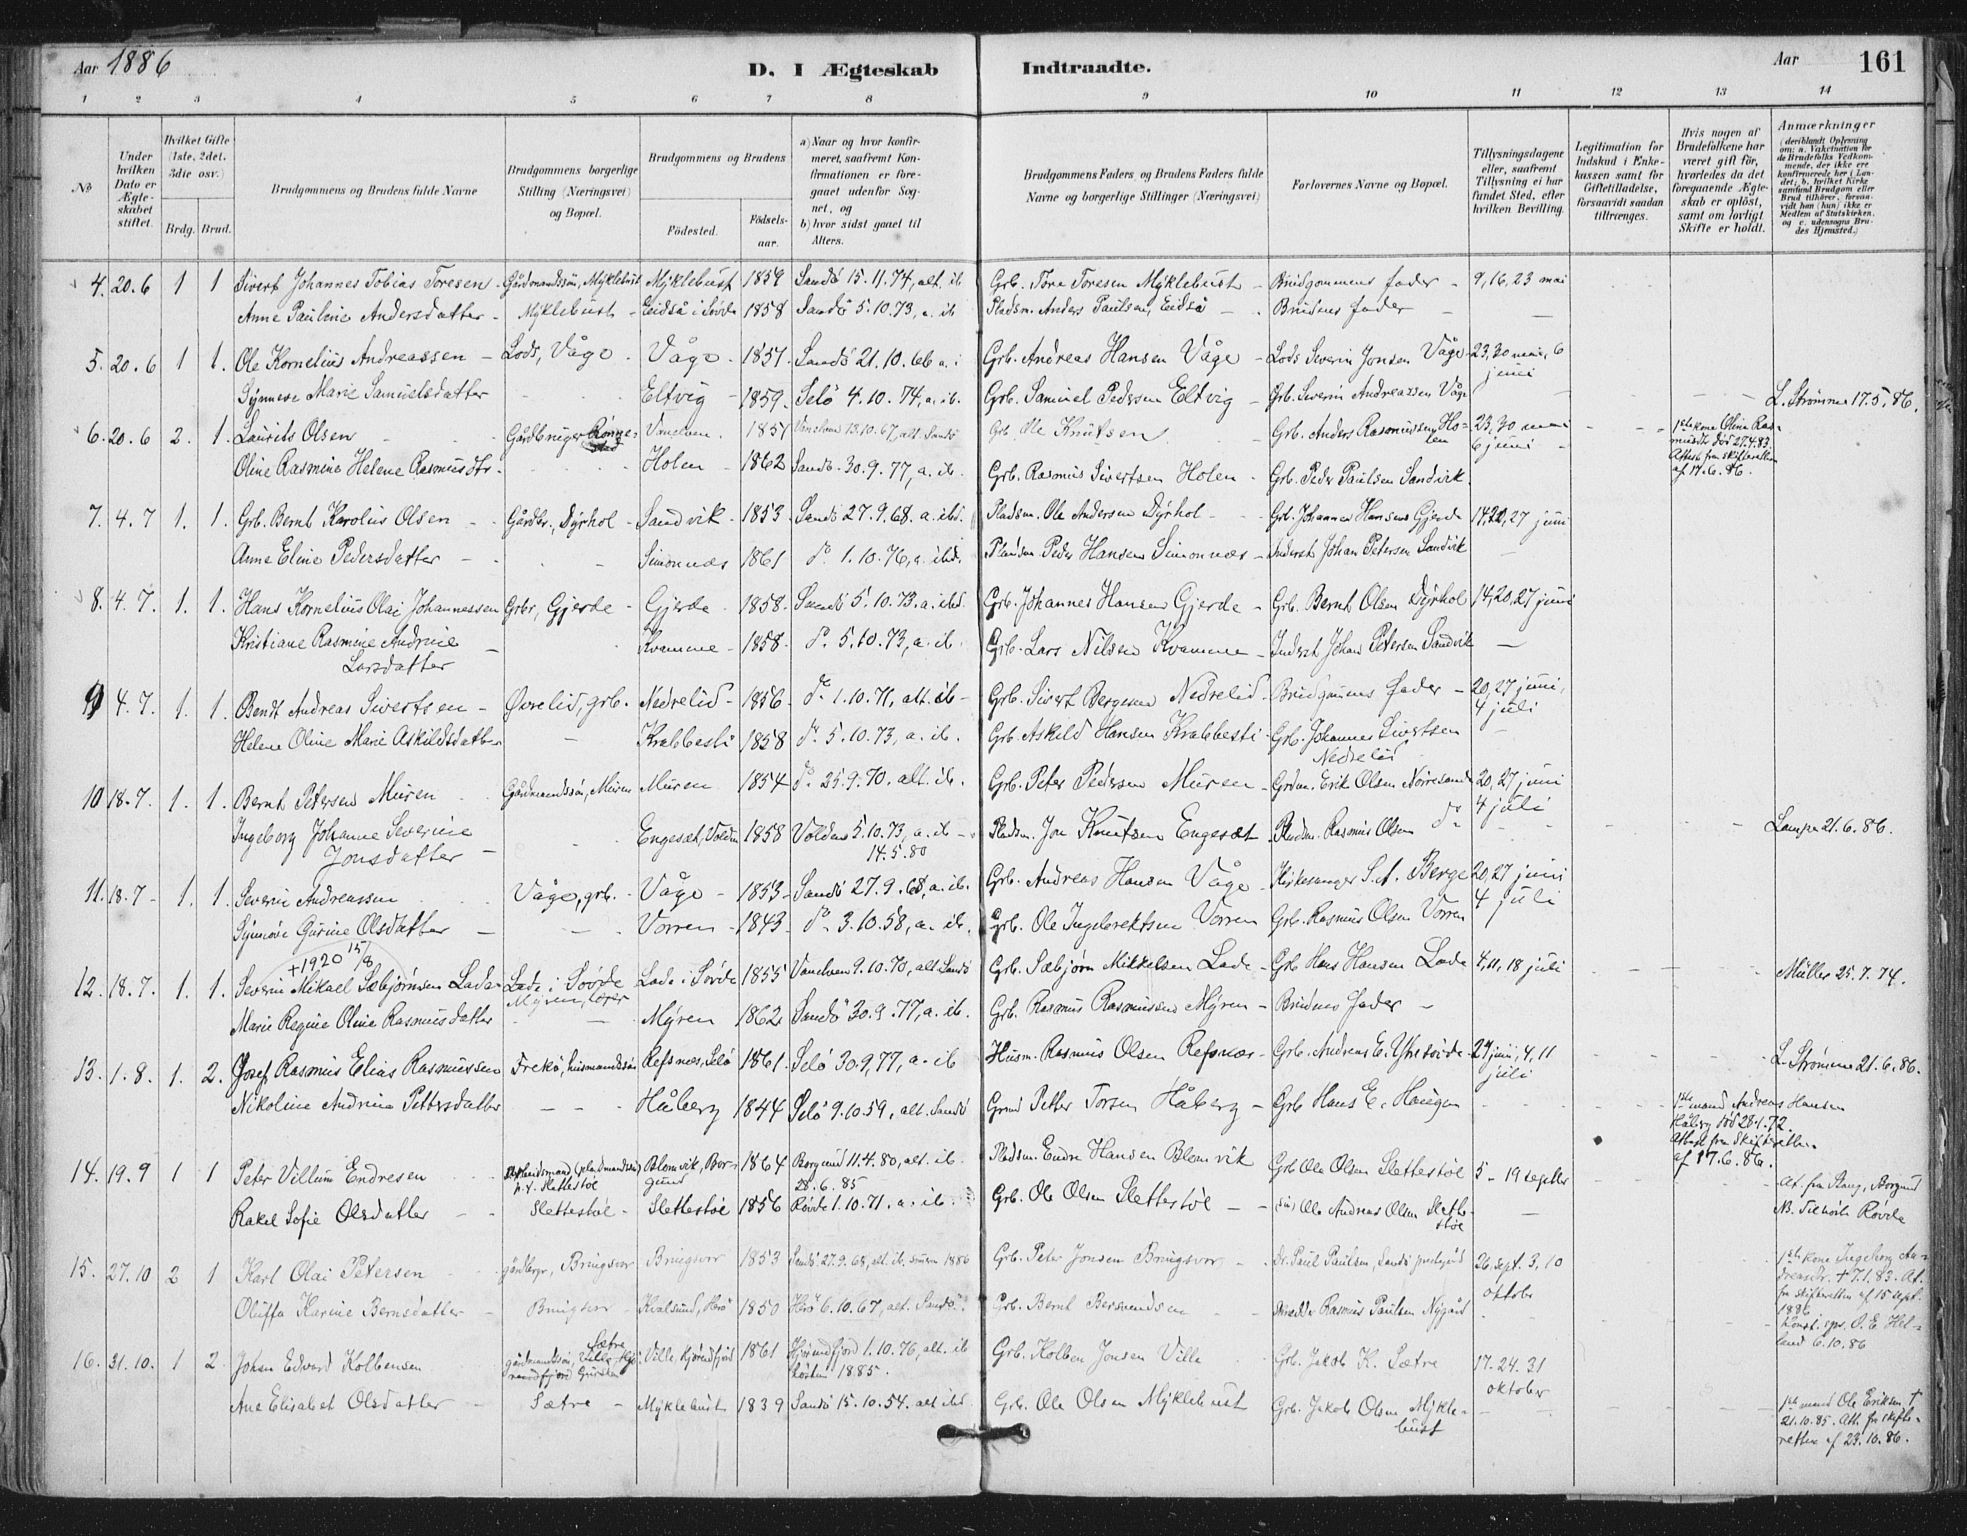 Aar 1886
D. I Ægteskab
Indtraadte.
Aar
161
1 2 3 4 5 6 7 8 9 10 11 12 13 14
No
Under hvilken Dato er Ægteskabet stiftet.
Hvilket Gifte (1ste, 2det, 3die osv.)
Brdg. Brud.
Brudgommens og Brudens fulde Navne
Brudgommens borgerlige Stilling (Næringsvei) og Bopæl.
Brudgommens og Brudens
Fødested.
Fødselsaar.
a) Naar og hvor konfirmeret, saafremt Konfirmationen er foregaaet udenfor Sognet, og
b) hvor sidst gaaet til Alters.
Brudgommens Faders og Brudens Faders fulde Navne og borgerlige Stillinger (Næringsvei)
Forlovernes Navne og Bopæl.
Tillysningsdagene eller, saafremt Tillysning ei har fundet Sted, efter hvilken Bevilling.
Legitimation for Indskud i Enkekassen samt for Giftetilladelse, forsaavidt saadan tiltrænges.
Hvis nogen af Brudefolkene har været gift før, hvorledes da det foregaaende Ægteskab er opløst, samt om lovligt Skifte er holdt.
Anmærkninger
(deriblandt Oplysning om: a. Vakcination for de Brudefolks Vedkommende, der ikke ere konfirmerede her i Landet; b. hvilket Kirkesamfund Brudgom eller Brud tilhører, forsaavidt han (hun) ikke er Medlem af Statskirken, og c. udensogns Brudes Hjemsted.)
4. 20.6 1 1 Sivert Johannes Tobias Toresen - Gårdmandssøn, Myklebust Myklebust 1859 Sandö 15.11.74, alt. ib Grb. Tore Toresen Myklebust - Brudgommens fader - 9, 16, 23 mai
Anne Pauline Andersdatter - Myklebust - Eidså i Søvde 1858 Sandö 5.10.73, a. ib Pladsm. Anders Paulsen, Eidså - Brudens fader -
5. 20.6 1 1. Ole Kornelius Andreassen - Lods, Våge - Våge - 1851 Sandö 21.10.66 a. i Grb. Andreas Hansen Våge - Lods Severin Jonsen Våge - 23, 30 mai, 6 juni
Synneve Marie Samuelsdatter Eltvig - 1859. Selö 4.10.74, a. ib. Grb. Samuel Pedersen Eltvig - Grb. Severin Andreassen Våge L. Strømme 17.5.86.
6. 20.6 2. 1. Laurits Olsen Gårdbruger Rønnestad Vanelven. 1851 Vanelven 13.10.67, alt. Sandö Grb. Ole Knutsen Grb. Anders Rasmussen Holen 23, 30 mai 6 juni - 1ste kone Oline Rasmusdtr død 27.4.83. Attest fra skifteretten af 17.6.86.
Oline Rasmine Helene Rasmusdtr. Holen - 1862 Sandö. 30.9.77, a. ib. Grb. Rasmus Sivertsen Holen - Grb. Peder Paulsen Sandvik
7. 4.7 1. 1. Grb. Bernt Karolius Olsen - Gårdbr., Dyrhol - Sandvik - 1853. Sandö 27.9.68. a. ibd. Pladsm. Ole Andersen Dyrhol - Grb. Johannes Hansen Gjerde 14, 20, 27 juni
Anne Eline Pedersdatter - Simonnæs 1861 do 1.10.76, a. ibd. Pladsm Peder Hansen Simonnæs - Inderst Johan Petersen Sandvik
8. 4.7. 1. 1. Hans Kornelius Olai Johannessen Grbr, Gjerde - Gjerde - 1858. Sandö 5.10.73. a. ibd. Grb. Johannes Hansen Gjerde - Grb. Bernt Olsen Dyrhol 14, 20, 27 juni
Kristiane Rasmine Andrine Larsdatter Kvamme - 1858. do 5.10.73, a. ib. Grb. Lars Nilsen Kvamme - Inderst Johan Petersen Sandvik -
9 4.7. 1. 1. Bendt Andreas Sivertsen - Øvrelid, grb. Nedrelid - 1856. do 1.10.71, alt. ib - Grb. Sivert Bergesen Nedrelid - Brudgommens fader - 20, 27 juni, 4 juli
Helene Oline Marie Askildsdatter Krabbesti 1858 do 5.10.73, a. ib. Grb. Askild Hansen Krabbesti - Grb. Johannes Sivertsen Nedrelid
10 18.7. 1. 1. Bernt Petersen Muren Gårdmandssøn, Muren Muren 1854 do 25.9.70. alt. ib. Grb. Peter Pedersen Muren - Grdm. Erik Olsen Nørresande 20, 27 juni 4 juli
Ingeborg Johanne Severine Jonsdatter - Engesæt, Volden 1858 Volden 5.10.73, a. ib - 14.5.80 Pladsm. Jon Knutsen Engesæt Pladsm. Rasmus Olsen do Lampe 21.6.86.
11. 18.7 - 1. 1. Severin Andreassen Våge, grb. - Våge - 1853 - Sandö 27.9.68, a. ib. Grb. Andreas Hansen Våge - Kirkesanger S.A. Berge 20, 27 juni 4 juli
Synnöve Gurine Olsdatter - Vorren - 1843. do 3.10.58, a. ib. Grb. Ole Ingebrektsen Vorren Grb. Rasmus Olsen Vorren
+1920 15/8
12. 18.7. 1. 1. Severin Mikael Sæbjørnsen Lade - Lade i Søvde Myren, Lade i Søvde 1855 Vanelven 9.10.70, alt. Sandö Grb. Sæbjørn Mikkelsen Lade - Grb Hans Hansen Lade 4, 11, 18 juli Müller 25.7.74.
Marie Regine Oline Rasmusdatter Myren 1862. Sandö 30.9.77, a. ib. Grb. Rasmus Rasmussen Myren - Brudens fader -
13. 1.8. 1. 2. Josef Rasmus Elias Rasmussen Frekö, husmandssøn Refsnæs, Selö 1861. Selö 30.9.77, a. ib Husm. Rasmus Olsen Refsnæs - Grb. Andreas E. 27 juni, 4, 11 juli L. Strømme 21.6.86.
Nikoline Andrina Pettersdatter - - Håberg 1844 Selö 9.10.59, alt. Sandö Grmd Petter Torsen Håberg - Grb Hans E. Haugen 1ste mand Andreas Hansen Håberg død 28.1.72. Attest fra skifteretten af 17.6.86.
14. 19.9 1 1 Peter Villum Endresen (pladsmandssøn) p.t. Slettestøl Blomvik, Borgund 1864 Borgund 11.4.80, alt. ib. 28.6.85 Pladsm. Endre Hansen Blomvik Grb Ole Olsen Slettestøl 5 - 19 septbr At. fra Borgund
Rakel Sofie Olsdatter - Slettestøl - Slettestøl 1856 Røvde 1.10.71. a. ib. Grb. Ole Olsen Slettestøl - - Ole Andreas Olsen Slettestøl - NB. Tilhører Røvde
15. 27.10 2 1 Karl Olai Petersen gårdbrgr, Bringsvor Bringsvor 1853 Sandö 27.9.68, alt. ib. 1886 Grb. Peter Jonsen Bringsvor - Paul Paulsen, Sandö 26 sept. 3, 10 oktobr 1ste kone Ingeborg Andreasdr. + 7.1.83. At. fra skifteretten af 15 sept. 1886
Oluffa Karine Berntsdatter - Bringsvor - Kvalsund, Herö 1850 Herö 6.10.67, alt. Sandö. Grb. Bernt Bersvendsen Rasmus Paulsen Nygård O. E. Helland 6.10.86
16. 31.10. 1 2. Johan Edvard Kolbensen gårdmandssøn, Ville, Hjørundfjord Sætre Gursken Ville, Hjørundfjord 1861 Hjørundfjord 1.10.76, alt. ib høsten 1885. Grb. Kolben Jonsen Ville Grb. Jakob K. Sætre 17. 24. 31 oktober
Ane Elisabet Olsdatter - Sætre - Myklebust 1839 Sandö 15.10.54. alt ibd. Grb. Ole Olsen Myklebust Grb. Jakob Olsen Myklebust - - 1ste mand Ole Eriksen + 21.10.85. Att. fra skifteretten af 23.10.86.